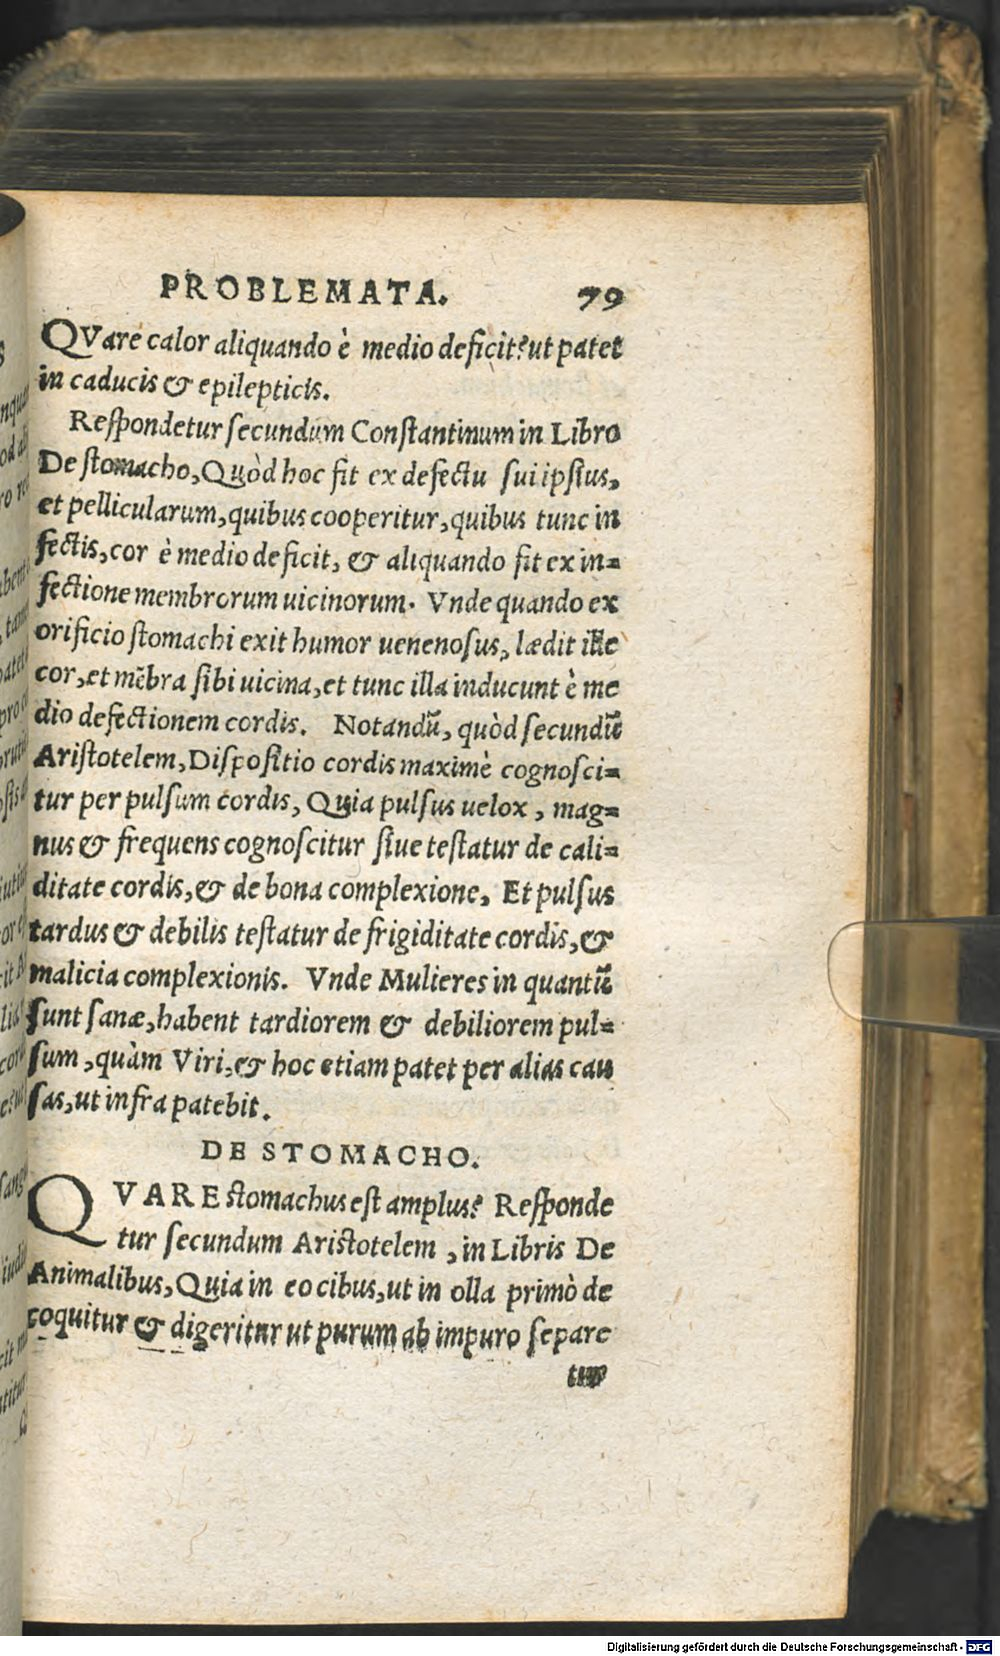 PROBLEMATA. 79
QVare calor aliquando è medio deficit? ut patet
in caducis & epilepticis.
Reſpondetur ſecundum Conſtantinum in Libro
De ſtomacho, Quòd hoc fit ex defectu ſui ipſius,
et pellicularum, quibus cooperitur, quibus tunc in
fectis, cor è medio deficit, & aliquando fit ex in=
fectione membrorum uicinorum. Vnde quando ex
orificio ſtomachi exit humor uenenoſus, lædit ille
cor, et mẽbra ſibi uicina, et tunc illa inducunt è me
dio defectionem cordis. Notandũ, quòd ſecundũ
Ariſtotelem, Diſpoſitio cordis maximè cognoſci=
tur per pulſum cordis, Quia pulſus uelox, mag=
nus & frequens cognoſcitur ſiue teſtatur de cali=
ditate cordis, & de bona complexione, Et pulſus
tardus & debilis teſtatur de frigiditate cordis, &
malicia complexionis. Vnde Mulieres in quantũ
ſunt ſanæ, habent tardiorem & debiliorem pul=
ſum, quàm Viri, & hoc etiam patet per alias cau
ſas, ut infra patebit.
DE STOMACHO.
QVARE ſtomachus eſt amplus? Reſponde
tur ſecundum Ariſtotelem, in Libris De
Animalibus, Quia in eo cibus, ut in olla primò de
coquitur & digeritur ut purum ab impuro ſepare
tur
Digitalisierung gefördert durch die Deutsche Forschungsgemeinschaft - DFG